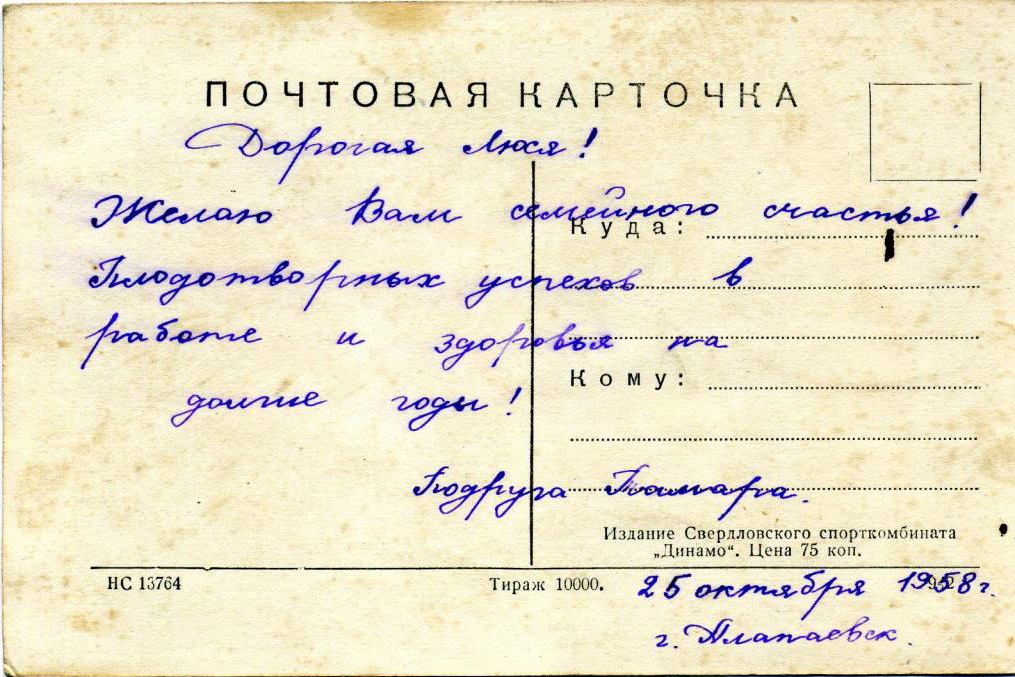 ПОЧТОВАЯ КАРТОЧКА
Дорогая Люся!
Желаю Вам семейного счастья!
Куда:
Плодотворных успехов в
работе и здоровья на
Кому:
долгие годы!
Подруга Тамара.
Издание Свердловского спорткомбината
„Динамо“. Цена 75 коп.
НС 13764 Тираж 10000. 25 октября 1958 г.
г. Алапаевск.